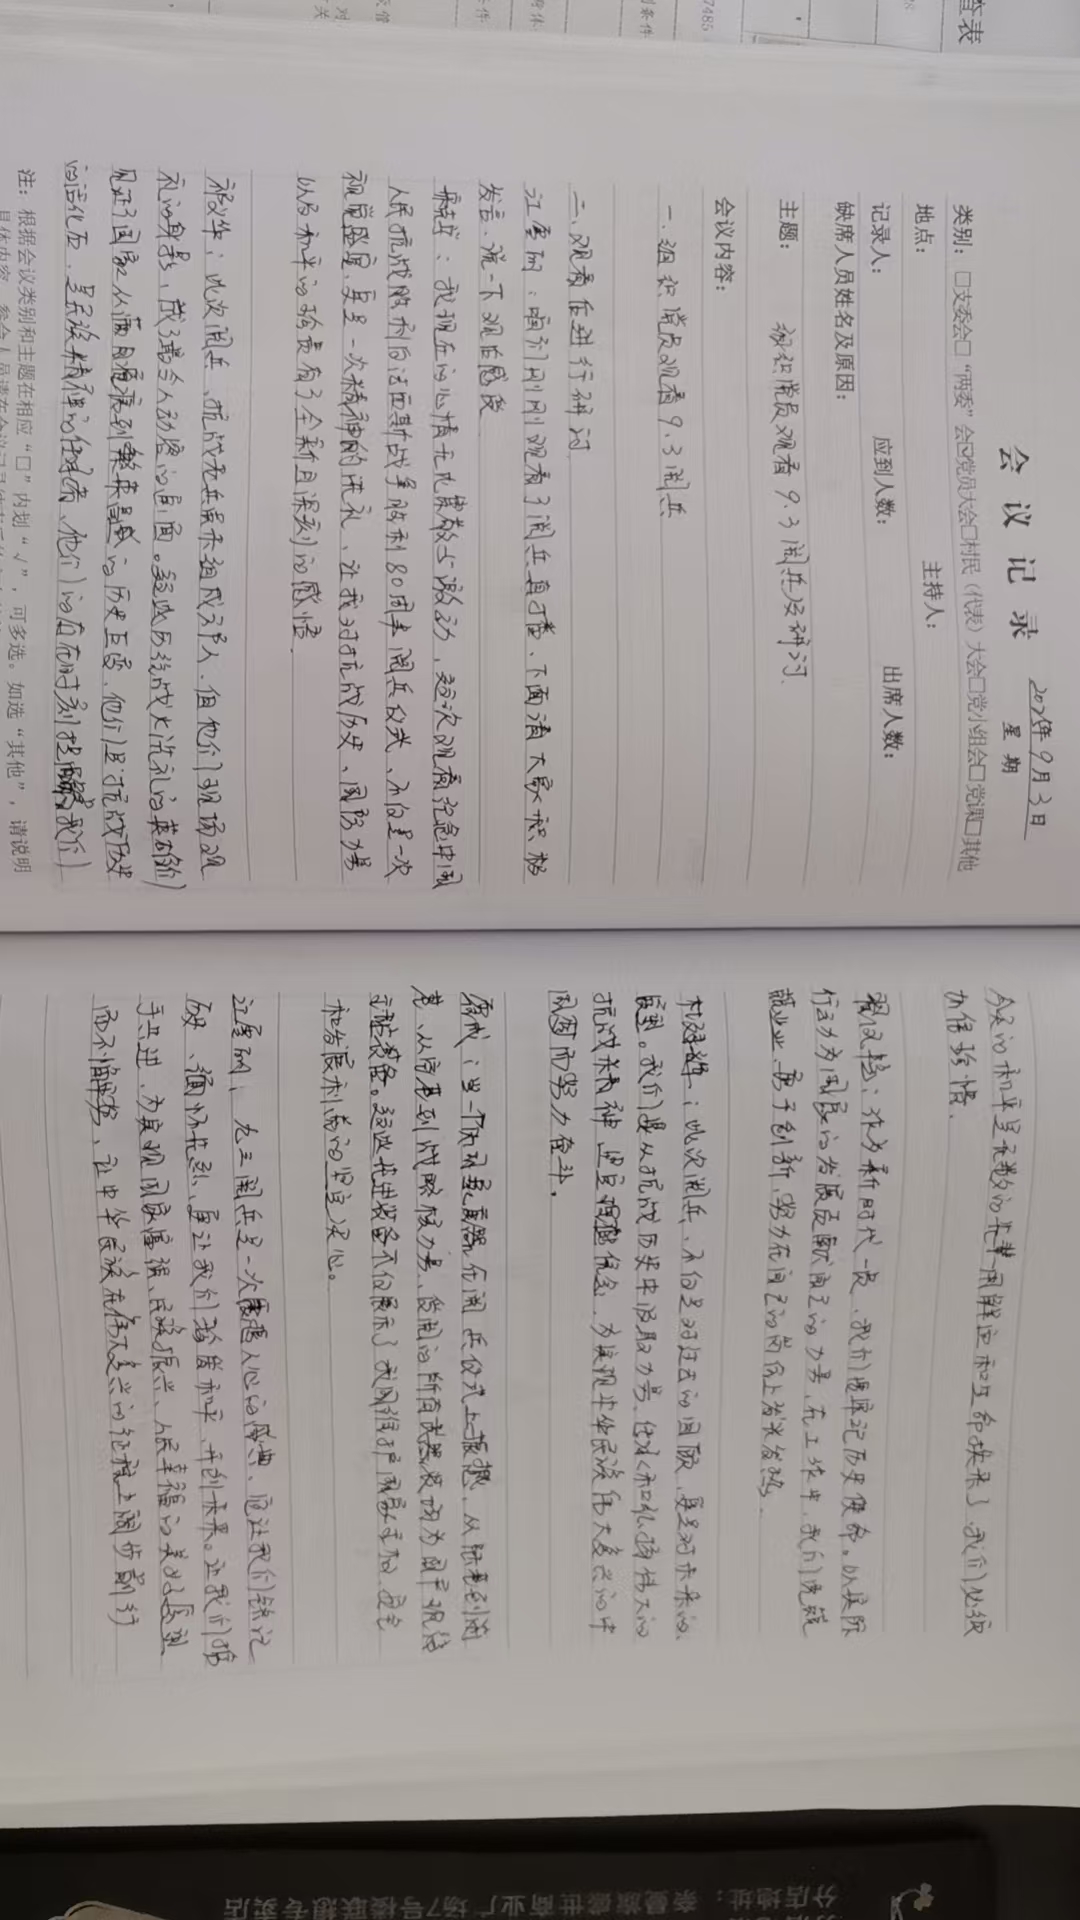 会议记录
2025年9月3日
星期
类别：□支委会□“两委”会☑党员大会□村民（代表）大会□党小组会□党课□其他
地点： 主持人：
记录人： 应到人数： 出席人数：
缺席人员姓名及原因：
主题： 组织党员观看9.3阅兵及研讨
会议内容：
一、组织党员观看9.3阅兵
二、观看后进行研讨
江雪丽：咱们刚刚观看了阅兵直播，下面请大家积极
发言，说一下观后感受
：我现在的心情无比崇敬与激动，这次观看纪念中国
人民抗战胜利与法西斯战争胜利80周年阅兵仪式，不仅是一次
视觉盛宴，更是一次精神的洗礼，让我对抗战历史、国防力量
以及和平的珍贵有了全新且深刻的感悟。
：此次阅兵，抗战老兵虽未组成方队，但他们现场观
礼的身影，成了最令人动容的画面。经过历经战火洗礼的英雄们
见证了国家从满目疮痍到繁荣昌盛的历史巨变，他们是抗战历史
的活化石，是民族精神的传承者，他们的存在时刻提醒着我们
注：根据会议类别和主题在相应“□”内划“√”，可多选。如选“其他”，请说明
具体内容
今天的和平是无数的先辈用鲜血和生命换来了，我们必须
加倍珍惜。
：作为新时代一员，我们要牢记历史使命，以实际
行动为国家的发展贡献自己的力量，在工作中，我们兢兢
业业，勇于创新，努力在自己的岗位上发光发热。
：此次阅兵，不仅是对过去的回顾，更是对未来的
宣誓。我们要从抗战历史中汲取力量，传承和弘扬伟大的
抗战精神，坚定理想信念，为实现中华民族伟大复兴的中
国梦而努力奋斗。
：当一个个武器在阅兵仪式上亮相，从陆战到海
，从常规到战略核力量，使用的所有武器装备均为国产现役
主战装备。这些先进装备不仅展示了我国维护国家主权、安全
和发展利益的坚定决心。
江雪丽：九三阅兵是一次震撼人心的盛典，它让我们铭记
历史、缅怀先烈，更让我们珍爱和平、开创未来。让我们携
手共进，为实现国家富强、民族振兴、人民幸福的美好愿望
而不懈努力，让中华民族在伟大复兴的征程上阔步前行